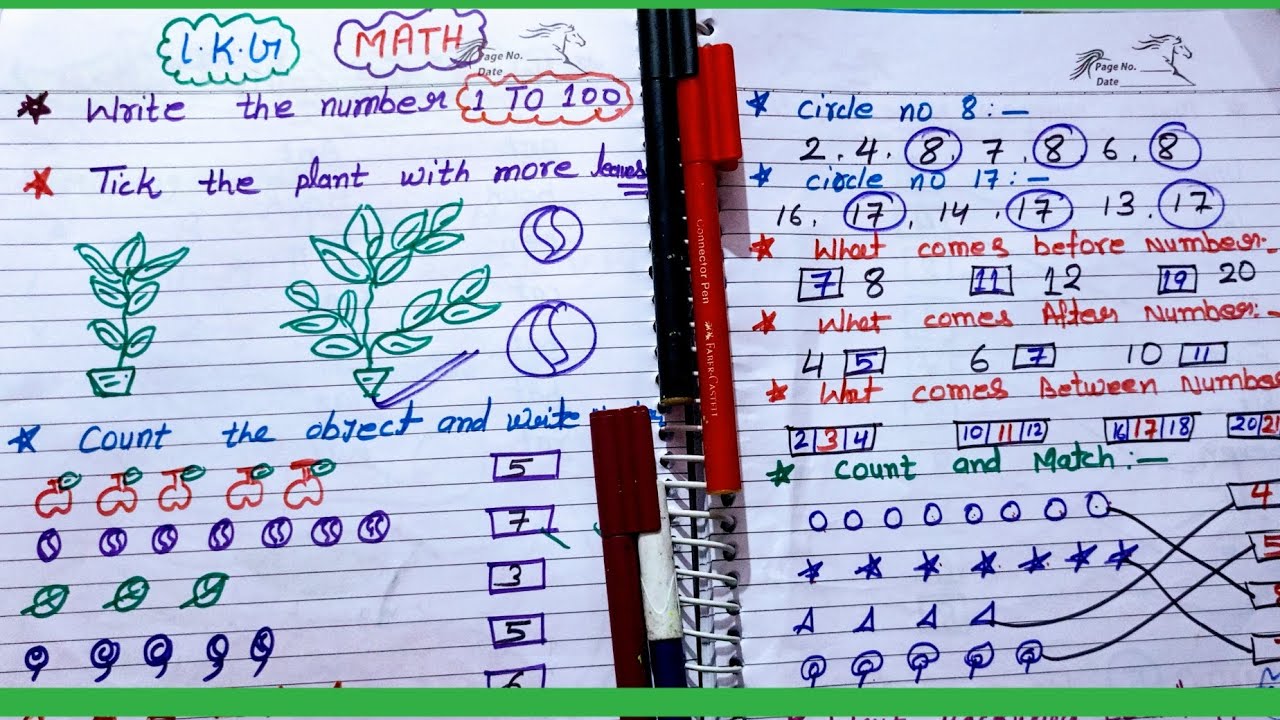 L.K.G MATH
Page No.
Date
Write the number 1 TO 100
Tick the plant with more leaves
Count the object and write
5
7
3
5
6
Connector Pen
FABER-CASTELL
Page No.
Date
Circle no 8:-
2. 4. 8. 7. 8 6. 8
circle no 17:-
16. 17, 14. 17 13. 17
What comes before Number:-
7 8 11 12 19 20
What comes After Number:-
4 5 6 7 10 11
What comes Between Number
2 3 4 10 11 12 16 17 18 20 21
Count and Match:-
4
5